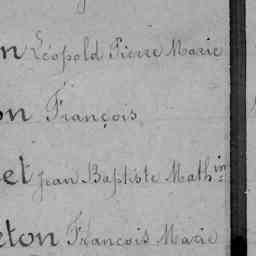 n Léopold Pierre Marie
on François
et Jean Baptiste Mathin
eton François Marie